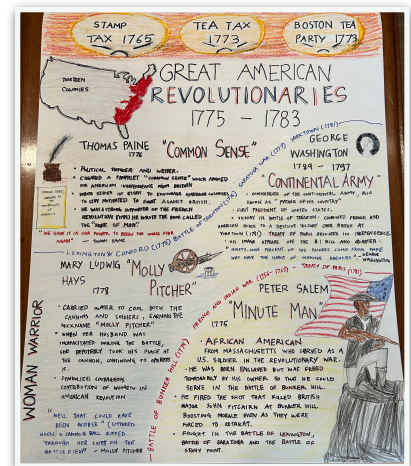 STAMP
TAX 1765
TEA TAX
1773
BOSTON TEA
PARTY 1773
THIRTEEN
COLONIES
GREAT AMERICAN
REVOLUTIONARIES
1775 - 1783
THOMAS PAINE
1776
"COMMON SENSE"
• POLITICAL THINKER AND WRITER.
• CREATED A PAMPHLET "COMMON SENSE" WHICH
FOR AMERICAN INDEPENDENCE FROM BRITAIN
• WROTE SERIES OF ESSAYS TO ENCOURAGE AMERICAN
TO STAY MOTIVATED TO FIGHT AGAINST BRITISH.
• HE WAS A STRONG SUPPORTER OF THE FRENCH
REVOLUTION HE WROTE THE BOOK CALLED
THE "RIGHTS OF MAN".
"WE HAVE IT IN OUR POWER TO BEGIN THE WORLD OVER
AGAIN" - THOMAS PAINE
YORKTOWN (1781)
SARATOGA WAR (1777)
BATTLE OF TRENTON (1776)
LEXINGTON & CONCORD (1775)
GEORGE
WASHINGTON
1789 - 1797
"CONTINENTAL ARMY"
• COMMANDER OF THE CONTINENTAL ARMY, ALSO
KNOWN AS "FATHER OF HIS COUNTRY"
• FIRST PRESIDENT OF UNITED STATES.
• VICTORY IN BATTLE OF TRENTON. COMBINED FRENCH AND
AMERICAN FORCES TO A DECISIVE VICTORY OVER BRITISH AT
YORKTOWN (1781) TREATY OF PARIS RESULTED IN INDEPENDENCE.
• HIS IMAGE APPEARS ON THE $1 BILL AND QUARTER.
• "NINETY-NINE PERCENT OF THE FAILURES COME FROM THOSE
WHO HAVE THE HABIT OF MAKING EXCUSES" - GEORGE
WASHINGTON
MARY LUDWIG
HAYS
1778
"MOLLY
PITCHER"
WOMAN WARRIOR
• CARRIED WATER TO COOL BOTH THE
CANNONS AND SOLDIERS, EARNING THE
NICKNAME "MOLLY PITCHER"
• WHEN HER HUSBAND WAS
INCAPACITATED DURING THE BATTLE,
SHE REPORTEDLY TOOK HIS PLACE AT
THE CANNON, CONTINUING TO OPERATE
IT.
• SYMBOLIZE COURAGEOUS
CONTRIBUTION OF WOMEN IN
AMERICAN REVOLUTION
"WELL THAT COULD HAVE
BEEN WORSE" (UTTERED
WHEN A CANNON BALL RIPPED
THROUGH HER SKIRT ON THE
BATTLEFIELD) - MOLLY PITCHER
BATTLE OF BUNKER HILL (1775)
FRENCH AND INDIAN WAR (1754 - 1763)
TREATY OF PARIS (1783)
PETER SALEM
"MINUTE MAN"
1775
• AFRICAN AMERICAN
FROM MASSACHUSETTS WHO SERVED AS A
U.S. SOLDIER IN THE REVOLUTIONARY WAR.
• HE WAS BORN ENSLAVED BUT WAS FREED
TEMPORARILY BY HIS OWNER. SO THAT HE COULD
SERVE IN THE BATTLE OF BUNKER HILL.
• HE FIRED THE SHOT THAT KILLED BRITISH
MAJOR JOHN PITCAIRN AT BUNKER HILL
BOOSTING MORALE EVEN AS THEY WERE
FORCED TO RETREAT.
• FOUGHT IN THE BATTLE OF LEXINGTON,
BATTLE OF SARATOGA AND THE BATTLE OF
STONY POINT.